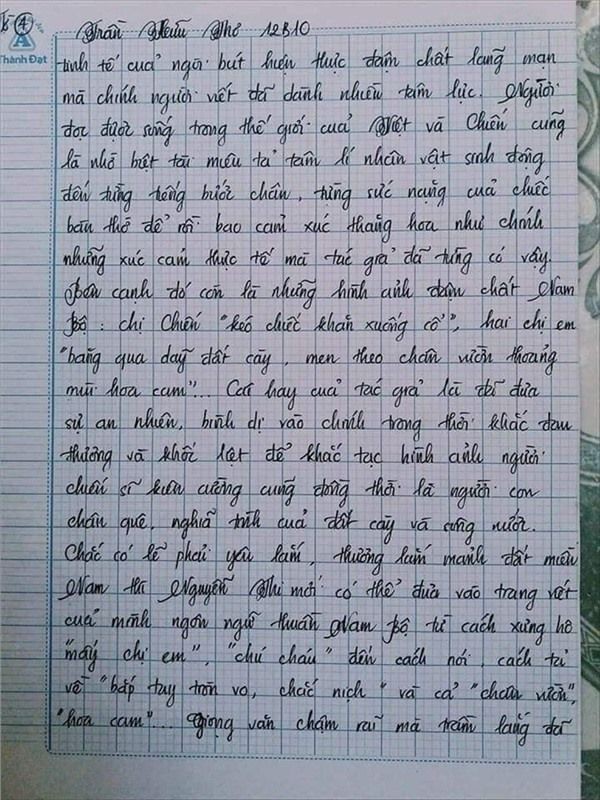 4
Thành Đạt
Trần Hữu Thơ 12B10
tinh tế của ngòi bút hiện thực đậm chất lãng mạn
mà chính người viết đã dành nhiều tâm lực. Người
đọc được sống trong thế giới của Việt và Chiến cũng
là nhờ biệt tài miêu tả tâm lí nhân vật sinh động
đến từng tiếng bước chân, từng sức nặng của chiếc
bàn thờ để rồi bao cảm xúc thăng hoa như chính
những xúc cảm thực tế mà tác giả đã từng có vậy.
Bên cạnh đó còn là những hình ảnh đậm chất Nam
Bộ: chị Chiến "kéo chiếc khăn xuống cổ", hai chị em
"băng qua dãy đất cày, men theo chân vườn thoảng
mùi hoa cam"... Cái hay của tác giả là đã đưa
sự an nhiên, bình dị vào chính trong thời khắc đau
thương và khốc liệt để khắc tạc hình ảnh người
chiến sĩ kiên cường cũng đồng thời là người con
chân quê, nghĩa tình của đất cày và ruộng nước.
Chắc có lẽ phải yêu lắm, thương lắm mảnh đất miền
Nam thì Nguyễn Thi mới có thể đưa vào trang viết
của mình ngôn ngữ thuần Nam Bộ từ cách xưng hô
"mấy chị em", "chú cháu" đến cách nói, cách tả
về "bắp tay tròn vo, chắc nịch" và cả "chân vườn",
"hoa cam"... Giọng văn chậm rãi mà trầm lắng đã